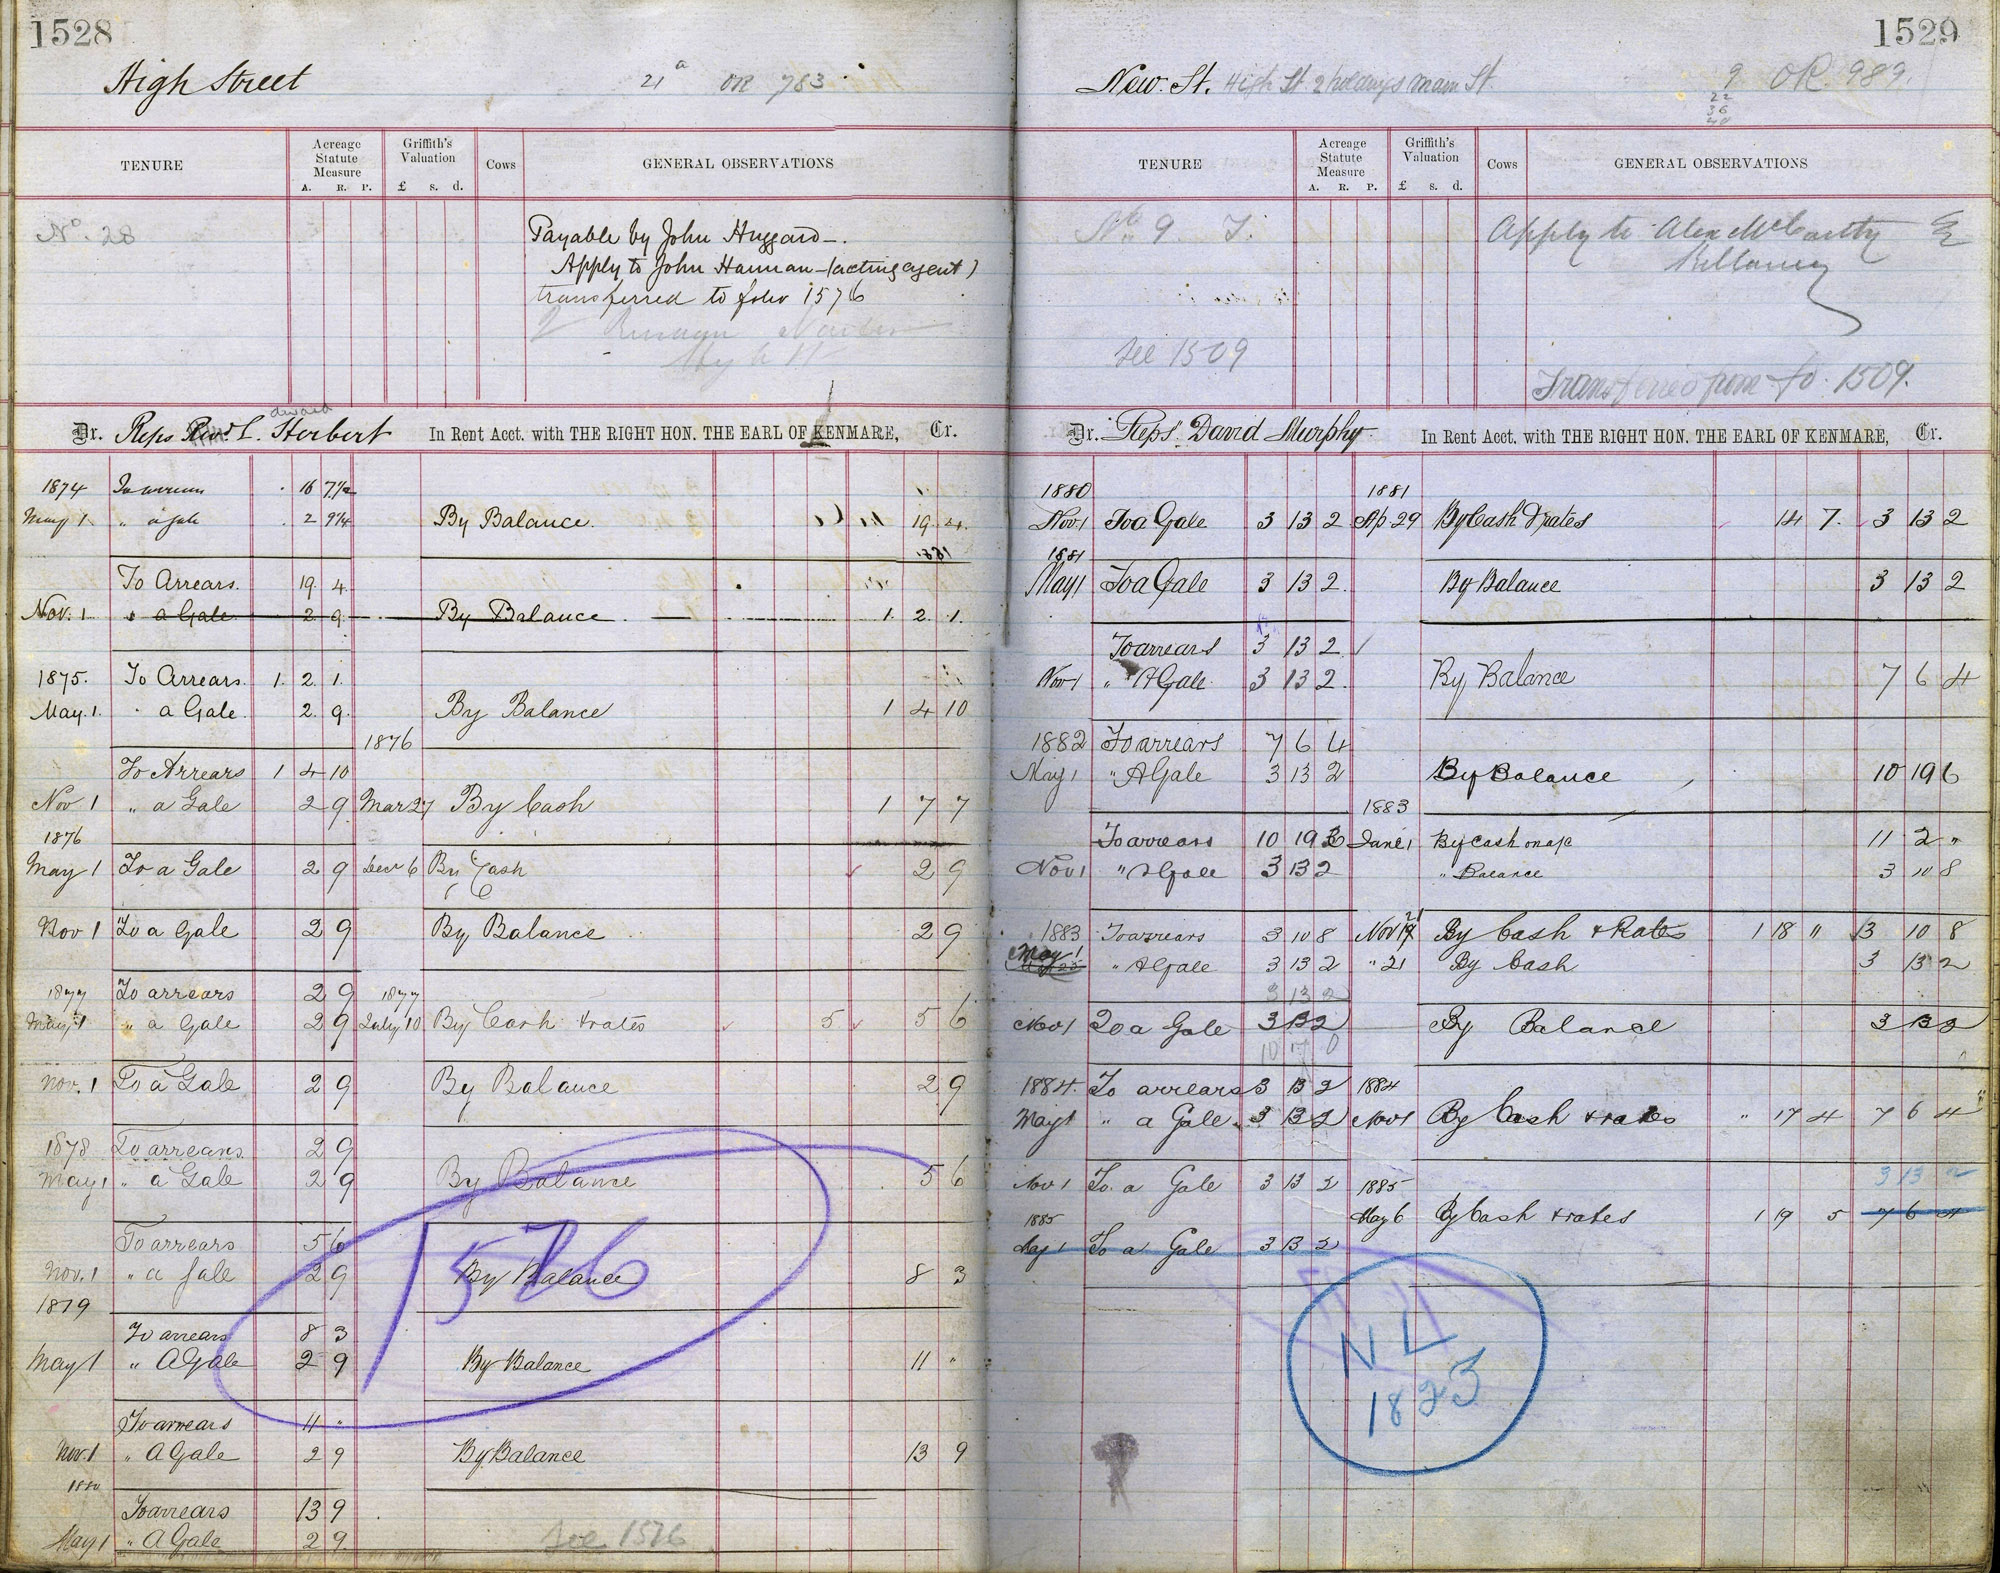 1528
High Street
21ª OR 783
TENURE
Acreage Statute Measure
A. R. P.
Griffith's Valuation
£ s. d.
Cows
GENERAL OBSERVATIONS
No. 28
Payable by John Huggard
Apply to John Hannan (acting agent)
transferred to folio 1576
Dr. Reps Revd. E. Herbert In Rent Acct. with THE RIGHT HON. THE EARL OF KENMARE, Cr.
edward
1874 To arrears 16 7 1/2
May 1. " a gale 2 9 1/4 By Balance. 19. 4.
To Arrears. 19. 4.
Nov. 1. " a Gale. 2. 9. By Balance. 1. 2. 1.
1875. To Arrears. 1. 2. 1.
May. 1. " a Gale. 2. 9. By Balance 1 4 10
1876
To Arrears 1 4 10
Nov 1 " a Gale 2 9 Mar 27 By Cash 1 7 7
1876
May 1 To a Gale 2 9 Decr 6 By Cash 2 9
Nov 1 To a Gale 2 9 By Balance 2 9
1877 To arrears 2 9 1877
May 1 " a Gale 2 9 July 10 By Cash & rates 5 5 6
Nov. 1 To a Gale 2 9 By Balance 2 9
1878 To arrears 2 9
May 1 " a Gale 2 9 By Balance 5 6
To arrears 5 6
Nov. 1 " a gale 2 9 By Balance 8 3
1576
1879
To arrears 8 3
May 1 " A Gale 2 9 By Balance 11 "
To arrears 11 "
Nov. 1 " A Gale 2 9 By Balance 13 9
1880
To arrears 13 9
May 1 " A Gale 2 9
See 1576
1529
New. St. High St. 2 holdings Main St.
9 OR. 989.
22
36
TENURE
Acreage Statute Measure
A. R. P.
Griffith's Valuation
£ s. d.
Cows
GENERAL OBSERVATIONS
No. 9 T.
Apply to Alex McCarthy
Killarney
See 1509
Transferred from fo. 1509.
Dr. Reps. David Murphy In Rent Acct. with THE RIGHT HON. THE EARL OF KENMARE, Cr.
1880 1881
Nov 1 To a Gale 3 13 2 Ap. 29 By Cash & rates 14 7. 3 13 2
1881
May 1 To a Gale 3 13 2 By Balance 3 13 2
To arrears 3 13 2
Nov 1 " A Gale 3 13 2 By Balance 7 6 4
1882 To arrears 7 6 4
May 1 " A Gale 3 13 2 By Balance 10 19 6
1883
To arrears 10 19 6 June 1 By Cash on a/c 11 2 "
Nov 1 " A Gale 3 13 2 " Balance 3 10 8
1883 To arrears 3 10 8 Nov 21 By Cash & Rates 1 18 " 3 10 8
May 1 " A Gale 3 13 2 " 21 By Cash 3 13 2
3 13 2
Nov 1 To a Gale 3 13 2 By Balance 3 13 2
10 17 0
1884. To arrears 3 13 2 1884
May 1 " a Gale 3 13 2 Nov 1 By Cash & rates " 17 4 7 6 4
Nov 1 To a Gale 3 13 2 1885 3 13 2
1885 May 6 By Cash & rates 1 19 5 7 6 4
May 1 To a Gale 3 13 2
NL
1823